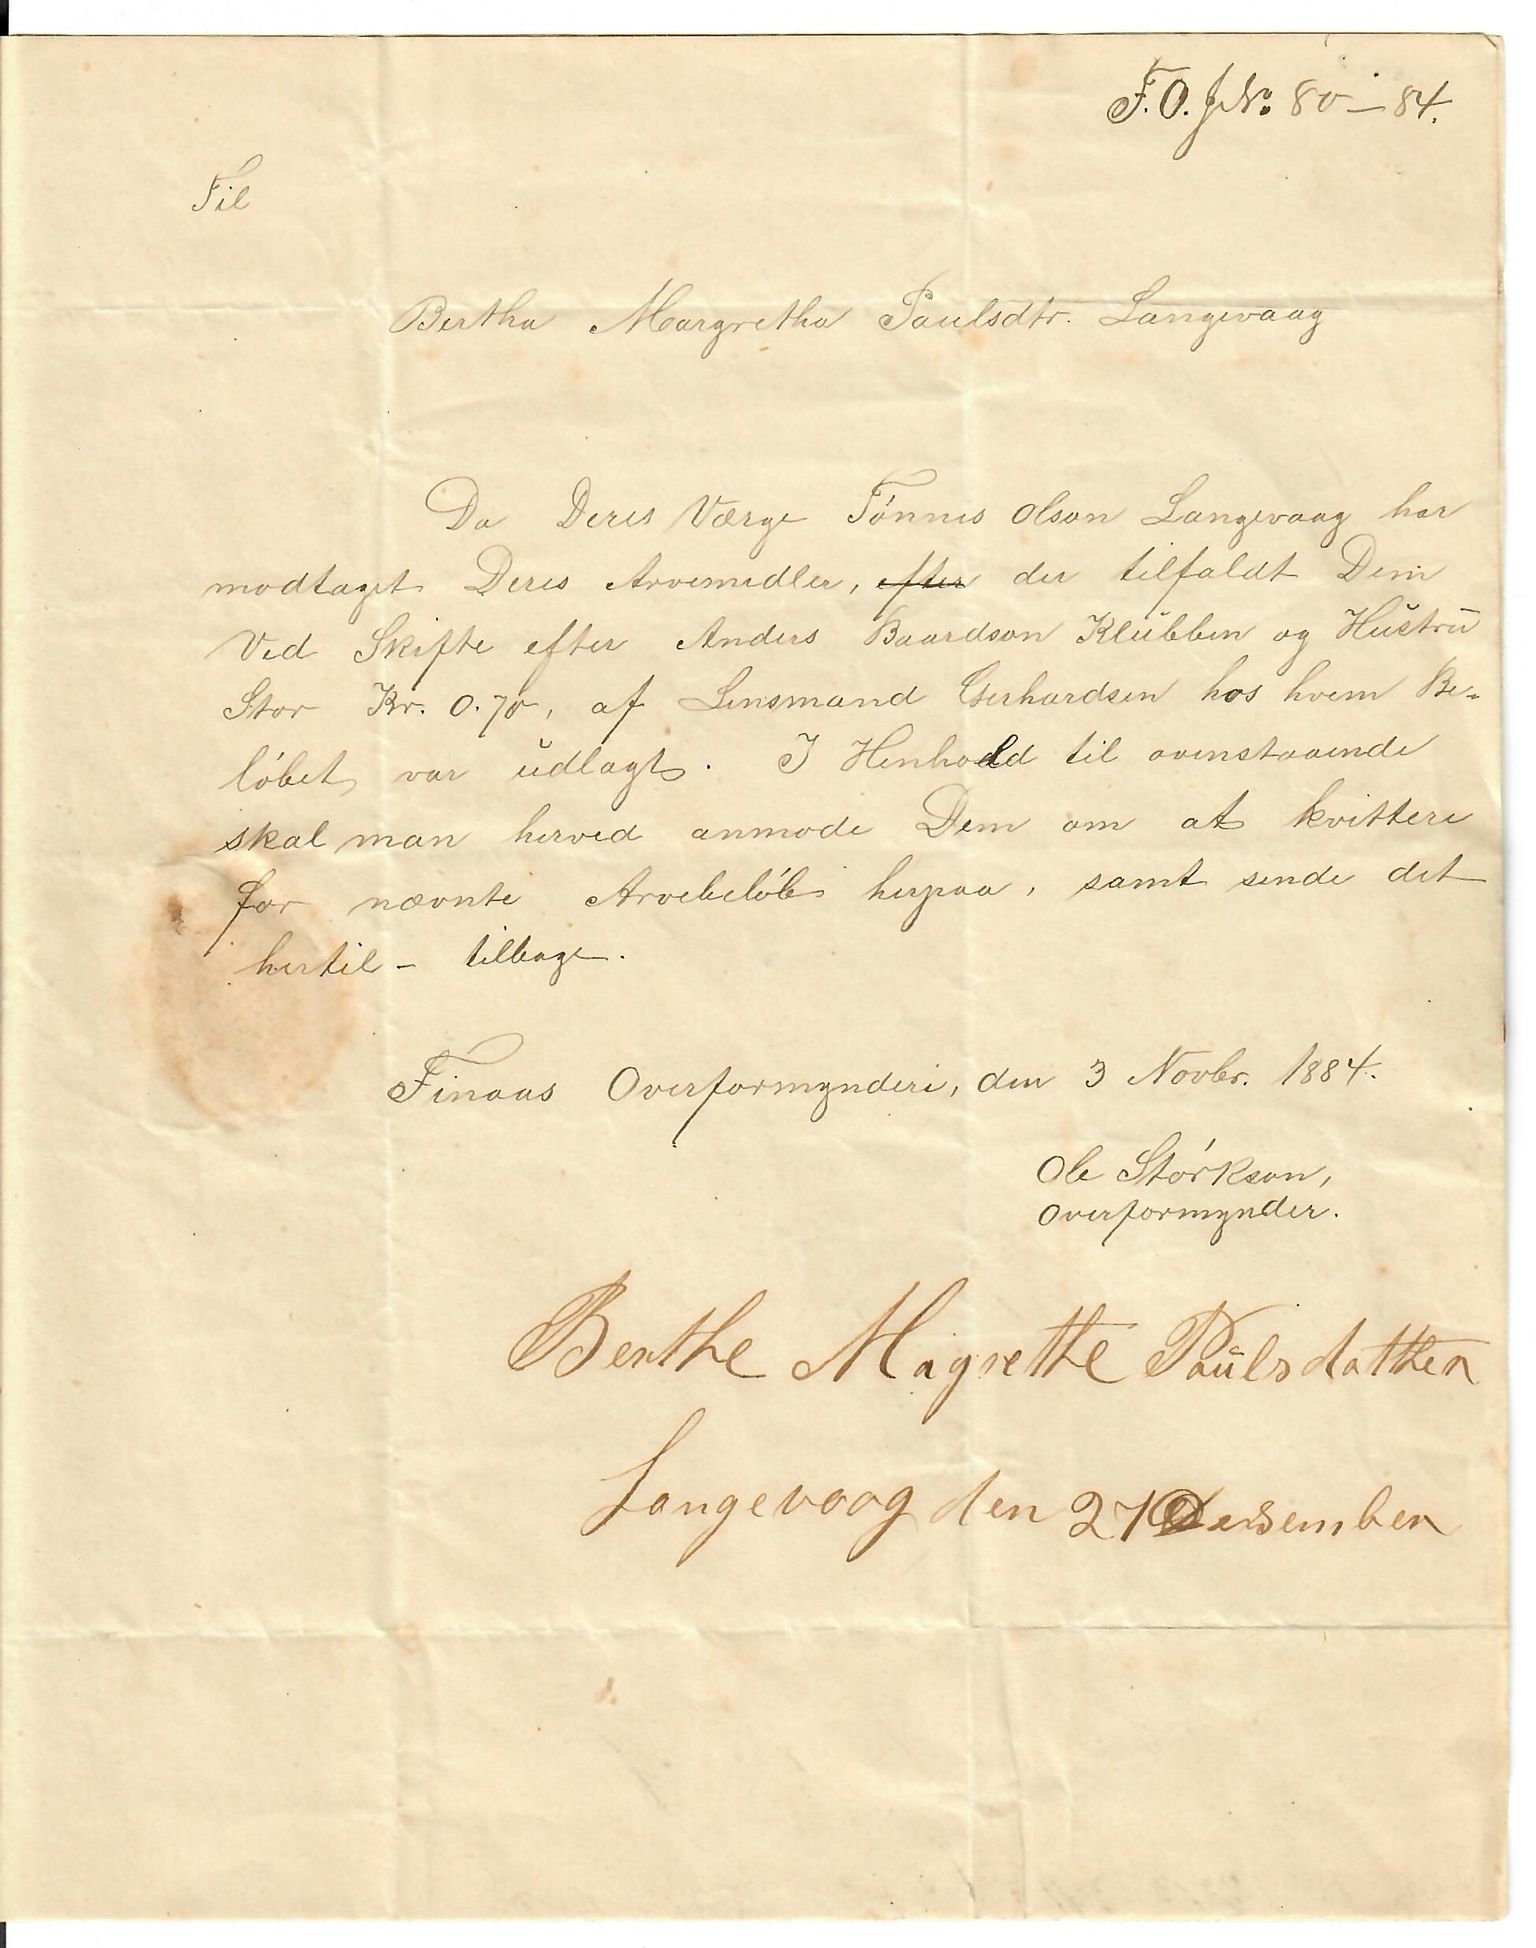 F. O. J. No. 80 – 84.
Til
Bertha Margretha Paulsdtr. Langevaag
Da Deres Værge Tönnes Olson Langevaag har
modtaget Deres Arvemidler, efter der tilfaldt Dem
Ved Skifte efter Anders Baardson Klubben og Hustru
Stor Kr. 0.70, af Lensmand Gerhardsen hos hvem Be-
löbet var udlagt. I Henhold til ovenstaaende
skal man herved anmode Dem om at kvittere
for nævnte Arvebelöb herpaa, samt sende det
hertil – tilbage.
Finaas Overformynderi, den 3 Novbr. 1884.
Ole Störkson,
Overformynder.
Berthe Magrethe Paulsdatther
Langevaag den 27 Desember